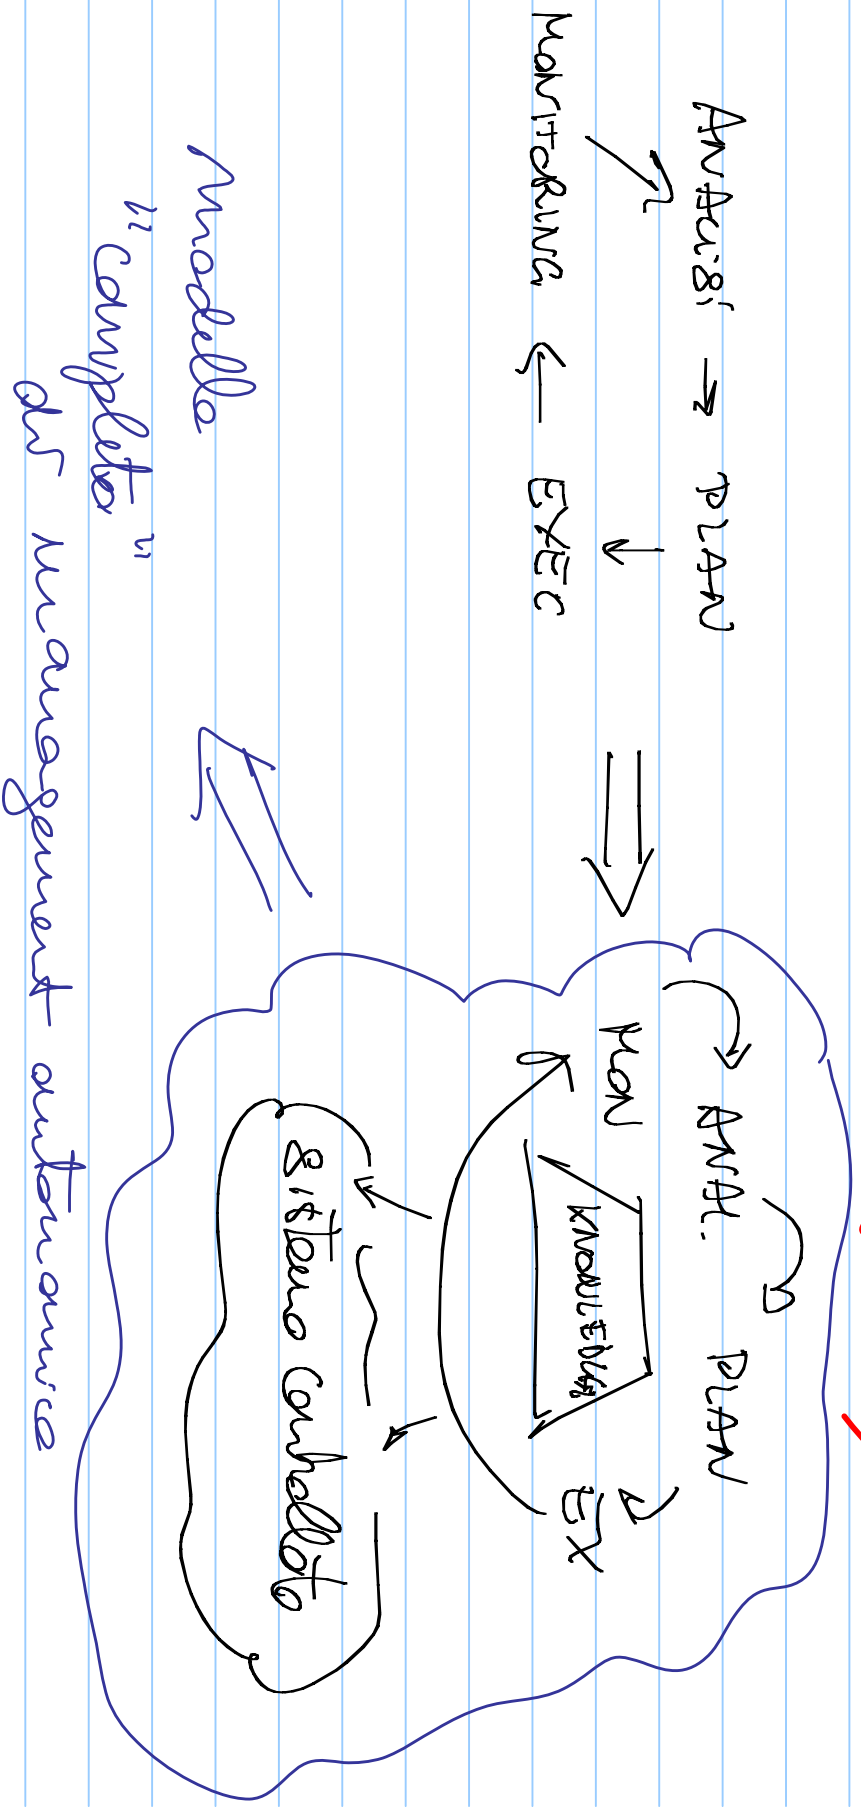 ANALISI → PLAN
MONITORING ← EXEC
ANAL. PLAN
MON EX
KNOWLEDGE
Sistema controllato
Modello
"completo"
di management autonomico